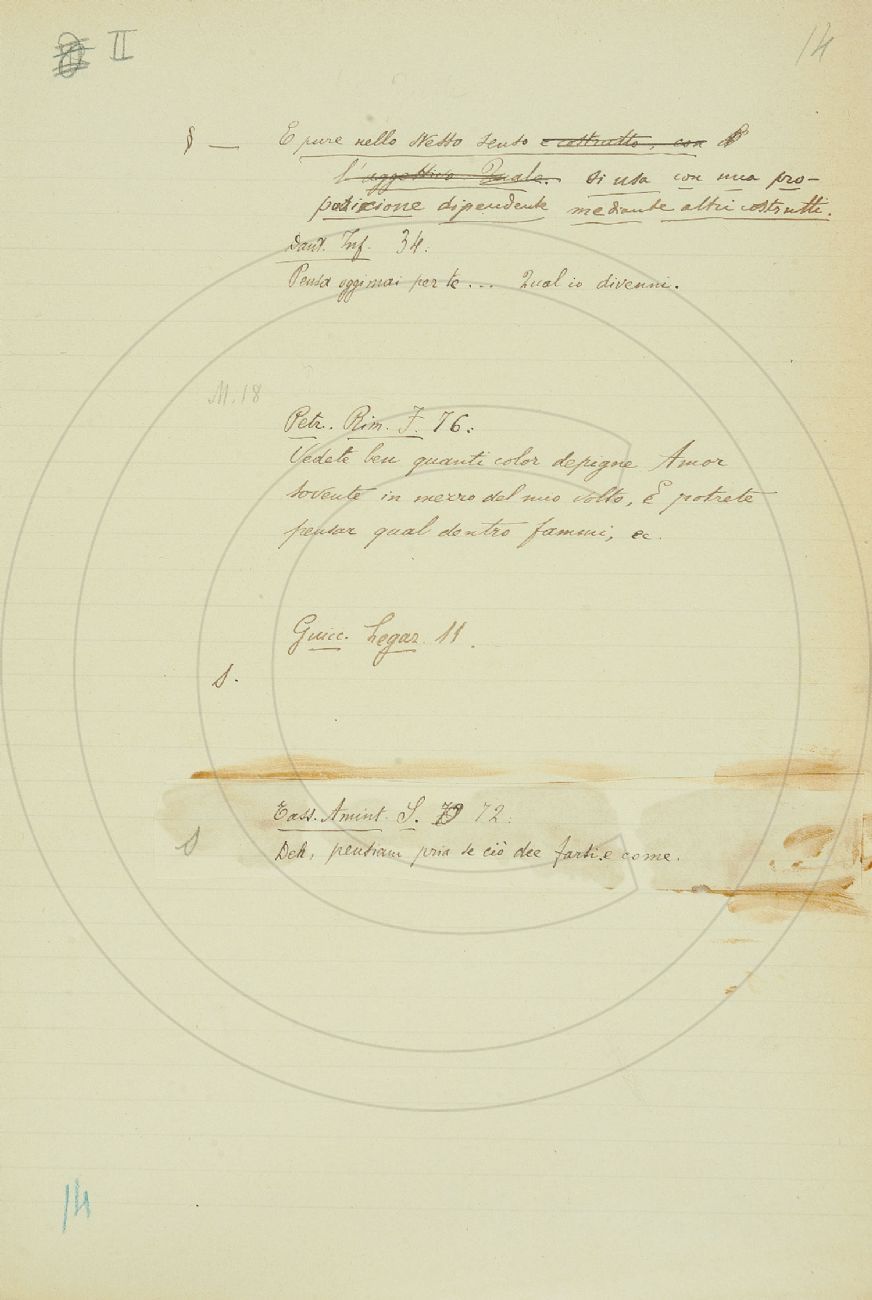 II
14
§ — E pure nello stesso senso e costrutto, con
l'aggettivo Quale. si usa con una pro-
posizione dipendente mediante altri costrutti.
Dant. Inf. 34:
Pensa oggimai per te... Qual io divenni.
M. 18
Petr. Rim. I. 76:
Vedete ben quanti color depigne Amor
sovente in mezzo del mio volto, E potrete
pensar qual dentro fammi, ec.
Guicc. Legaz. 11.
S.
Tass. Amint. S. 72:
S
Deh, pensiam pria se ciò dee farti e come.
14